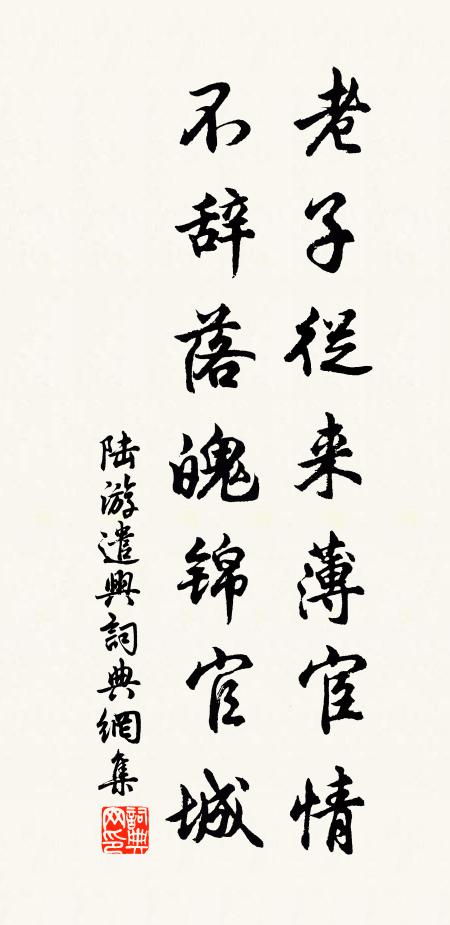 老子從来薄宦情
不辞落魄锦官城
陆游遣興詞典網集
詞典網印